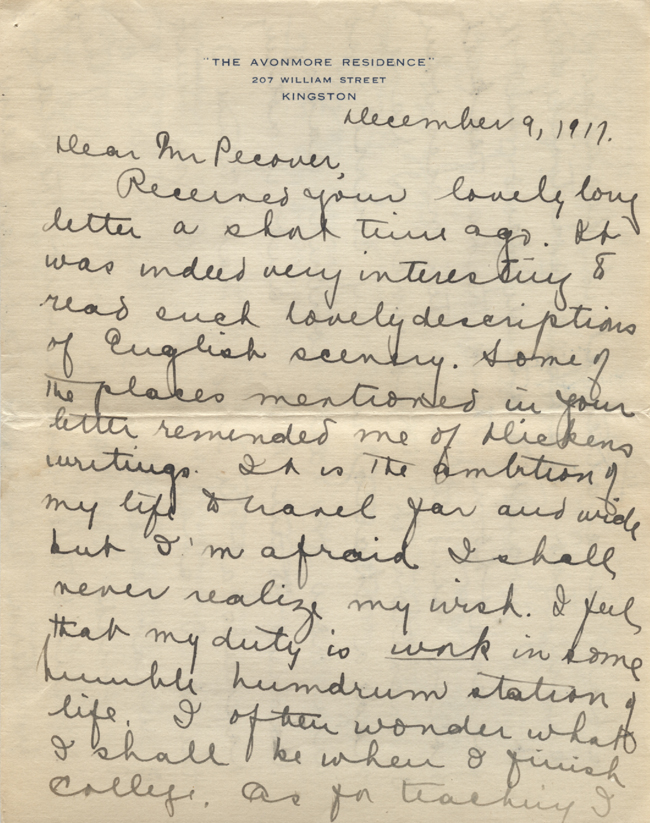 "THE AVONMORE RESIDENCE"
207 WILLIAM STREET
KINGSTON
December 9, 1917.
Dear Mr Pecover,
Received your lovely long
letter a short time ago. It
was indeed very interesting to
read such lovely descriptions
of English scenery. Some of
the places mentioned in your
letter reminded me of Dickens
writings. It is the ambition of
my life to travel far and wide
but I'm afraid I shall
never realize my wish. I feel
that my duty is work in some
humble humdrum station of
life. I often wonder what
I shall be when I finish
College. As for teaching I